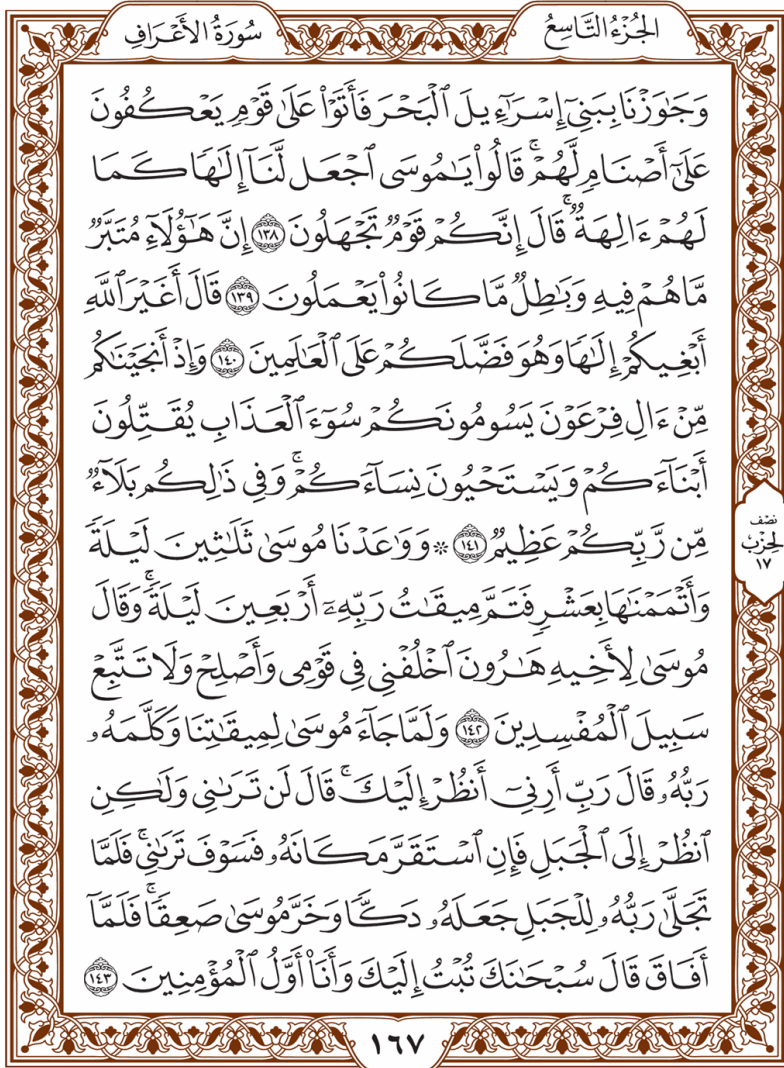 الجُزْءُ التَّاسِعُ
سُورَةُ الأَعْرَافِ
وَجَٰوَزْنَا بِبَنِيٓ إِسْرَٰٓءِيلَ ٱلْبَحْرَ فَأَتَوْا۟ عَلَىٰ قَوْمٍ يَعْكُفُونَ
عَلَىٰٓ أَصْنَامٍ لَّهُمْ ۚ قَالُوا۟ يَٰمُوسَى ٱجْعَل لَّنَآ إِلَٰهًا كَمَا
لَهُمْ ءَالِهَةٌ ۚ قَالَ إِنَّكُمْ قَوْمٌ تَجْهَلُونَ ١٣٨ إِنَّ هَٰٓؤُلَآءِ مُتَبَّرٌ
مَّا هُمْ فِيهِ وَبَٰطِلٌ مَّا كَانُوا۟ يَعْمَلُونَ ١٣٩ قَالَ أَغَيْرَ ٱللَّهِ
أَبْغِيكُمْ إِلَٰهًا وَهُوَ فَضَّلَكُمْ عَلَى ٱلْعَٰلَمِينَ ١٤٠ وَإِذْ أَنجَيْنَٰكُم
مِّنْ ءَالِ فِرْعَوْنَ يَسُومُونَكُمْ سُوٓءَ ٱلْعَذَابِ يُقَتِّلُونَ
أَبْنَآءَكُمْ وَيَسْتَحْيُونَ نِسَآءَكُمْ ۚ وَفِي ذَٰلِكُم بَلَآءٌ
مِّن رَّبِّكُمْ عَظِيمٌ ١٤١ ۞ وَوَٰعَدْنَا مُوسَىٰ ثَلَٰثِينَ لَيْلَةً
وَأَتْمَمْنَٰهَا بِعَشْرٍ فَتَمَّ مِيقَٰتُ رَبِّهِۦٓ أَرْبَعِينَ لَيْلَةً ۚ وَقَالَ
مُوسَىٰ لِأَخِيهِ هَٰرُونَ ٱخْلُفْنِي فِي قَوْمِي وَأَصْلِحْ وَلَا تَتَّبِعْ
سَبِيلَ ٱلْمُفْسِدِينَ ١٤٢ وَلَمَّا جَآءَ مُوسَىٰ لِمِيقَٰتِنَا وَكَلَّمَهُۥ
رَبُّهُۥ قَالَ رَبِّ أَرِنِيٓ أَنظُرْ إِلَيْكَ ۚ قَالَ لَن تَرَىٰنِي وَلَٰكِنِ
ٱنظُرْ إِلَى ٱلْجَبَلِ فَإِنِ ٱسْتَقَرَّ مَكَانَهُۥ فَسَوْفَ تَرَىٰنِي ۚ فَلَمَّا
تَجَلَّىٰ رَبُّهُۥ لِلْجَبَلِ جَعَلَهُۥ دَكًّا وَخَرَّ مُوسَىٰ صَعِقًا ۚ فَلَمَّآ
أَفَاقَ قَالَ سُبْحَٰنَكَ تُبْتُ إِلَيْكَ وَأَنَا۠ أَوَّلُ ٱلْمُؤْمِنِينَ ١٤٣
نصف
الحزب
١٧
١٦٧